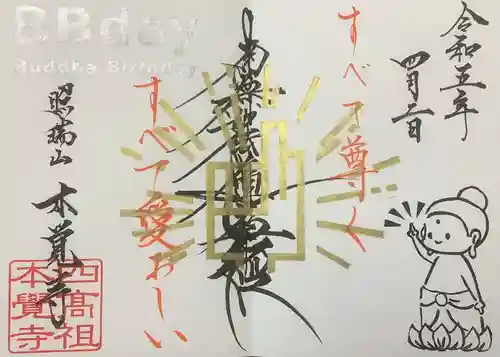 BBday
Buddha Birthday
令和五年
四月二日
すべて尊く
すべて愛おしい
照瑞山
本覚寺
四高祖
本覺寺